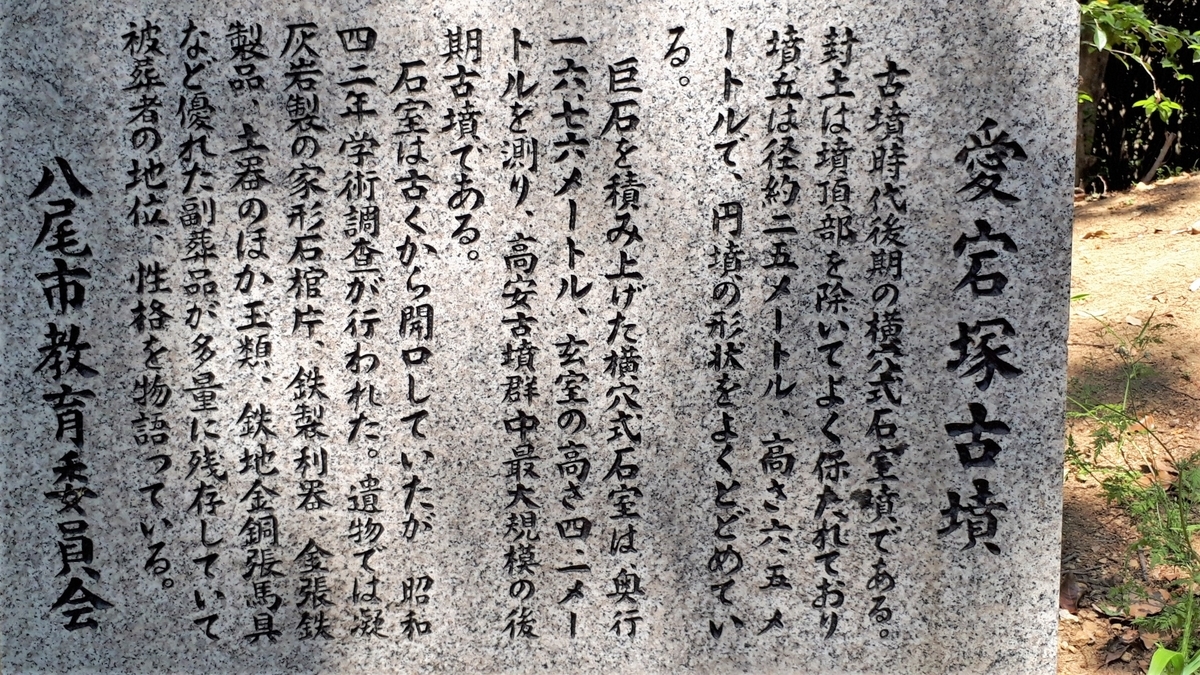 愛宕塚古墳
古墳時代後期の横穴式石室墳である。
封土は墳頂部を除いてよく保たれており
墳丘は径約二五メートル、高さ六・五メ
ートルで、円墳の形状をよくとどめてい
る。
巨石を積み上げた横穴式石室は、奥行
一六七六メートル、玄室の高さ四・二メー
トルを測り、高安古墳群中最大規模の後
期古墳である。
石室は古くから開口していたが 昭和
四二年学術調査が行われた。遺物では凝
灰岩製の家形石棺片、鉄製利器、金張鉄
製品、土器のほか玉類、鉄地金銅張馬具
など優れた副葬品が多量に残存していて
被葬者の地位、性格を物語っている。
八尾市教育委員会